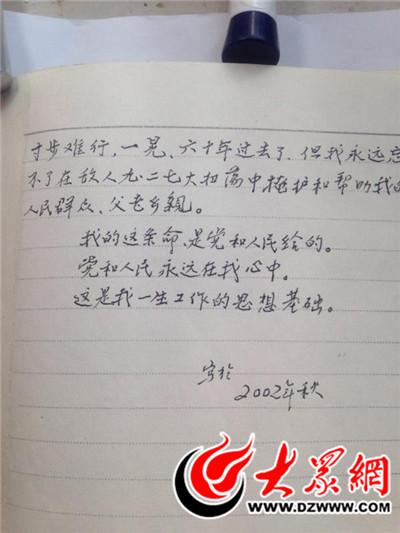 寸步难行，一晃、六十年过去了．但我永远忘
不了在敌人九·二七大扫荡中掩护和帮助我的
人民群众、父老乡亲。
我的这条命、是党和人民给的。
党和人民永远在我心中。
这是我一生工作的思想基础。
写於
2002年秋
大眾網
WWW.DZWWW.COM